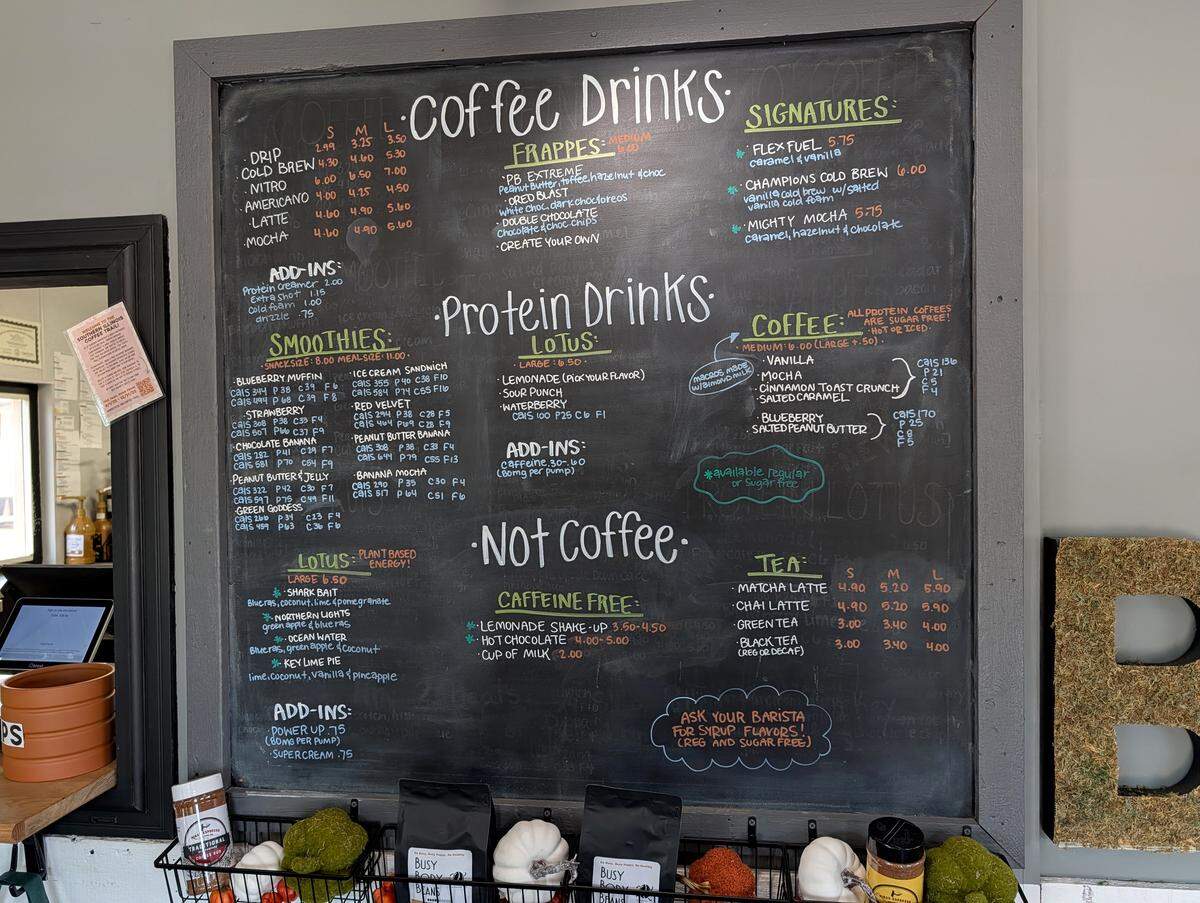 ·COFFEE DRINKS·
S M L
·DRIP 2.99 3.25 3.50
·COLD BREW 4.30 4.60 5.30
·NITRO 6.00 6.50 7.00
·AMERICANO 4.00 4.25 4.50
·LATTE 4.60 4.90 5.60
·MOCHA 4.60 4.90 5.60
ADD-INS:
Protein creamer 2.00
Extra shot 1.15
cold foam 1.00
drizzle .75
FRAPPES: MEDIUM
·PB EXTREME
Peanut butter, toffee, hazelnut & choc
·OREO BLAST
white choc, dark choc, oreos
·DOUBLE CHOCOLATE
chocolate & choc chips
·CREATE YOUR OWN
SIGNATURES:
* ·FLEX FUEL 5.75
caramel & vanilla
* ·CHAMPIONS COLD BREW 6.00
vanilla cold brew w/salted
vanilla cold foam
* ·MIGHTY MOCHA 5.75
caramel, hazelnut & chocolate
·PROTEIN DRINKS·
SMOOTHIES:
·SNACK SIZE: 8.00 MEAL SIZE: 11.00·
·BLUEBERRY MUFFIN
cals 344 P38 C39 F6
cals 494 P68 C39 F8
·STRAWBERRY
cals 308 P38 C33 F4
cals 507 P66 C37 F9
·CHOCOLATE BANANA
cals 282 P41 C24 F7
cals 581 P70 C54 F9
·PEANUT BUTTER & JELLY
cals 322 P42 C30 F7
cals 597 P75 C49 F11
·GREEN GODDESS
cals 266 P34 C23 F4
cals 459 P63 C36 F6
·ICE CREAM SANDWICH
cals 355 P40 C38 F10
cals 584 P74 C55 F16
·RED VELVET
cals 294 P38 C28 F5
cals 464 P69 C28 F7
·PEANUT BUTTER BANANA
cals 308 P38 C33 F4
cals 644 P79 C55 F13
·BANANA MOCHA
cals 290 P35 C30 F4
cals 517 P64 C51 F6
LOTUS:
·LARGE: 6.50·
·LEMONADE (PICK YOUR FLAVOR)
·SOUR PUNCH
·WATERBERRY
cals 100 P25 C6 F1
ADD-INS:
caffeine .30-.60
(80mg per pump)
COFFEE: ALL PROTEIN COFFEES
ARE SUGAR FREE!
·HOT OR ICED·
·MEDIUM: 6.00 (LARGE +.50)·
macros made
w/almond milk
·VANILLA
·MOCHA
·CINNAMON TOAST CRUNCH
·SALTED CARAMEL
cals 136
P 21
C 5
F 4
·BLUEBERRY
·SALTED PEANUT BUTTER
cals 170
P 25
C 8
F 5
*available regular
or sugar free
·NOT COFFEE·
LOTUS: PLANT BASED
ENERGY!
LARGE 6.50
* ·SHARK BAIT
Blue ras, coconut, lime & pomegranate
* ·NORTHERN LIGHTS
green apple & blue ras
* ·OCEAN WATER
Blue ras, green apple & coconut
* ·KEY LIME PIE
lime, coconut, vanilla & pineapple
ADD-INS:
·POWER UP .75
(80MG PER PUMP)
·SUPER CREAM .75
CAFFEINE FREE:
* ·LEMONADE SHAKE-UP 3.50-4.50
* ·HOT CHOCOLATE 4.00-5.00
·CUP OF MILK 2.00
TEA: S M L
·MATCHA LATTE 4.90 5.20 5.90
·CHAI LATTE 4.90 5.20 5.90
·GREEN TEA 3.00 3.40 4.00
·BLACK TEA 3.00 3.40 4.00
(REG OR DECAF)
ASK YOUR BARISTA
FOR SYRUP FLAVORS!
(REG AND SUGAR FREE)
SOUTHERN ILLINOIS
COFFEE TRAIL!
PS
TRADITIONAL
BUSY
BODY
BEANS
BUSY
BODY
BEANS
B